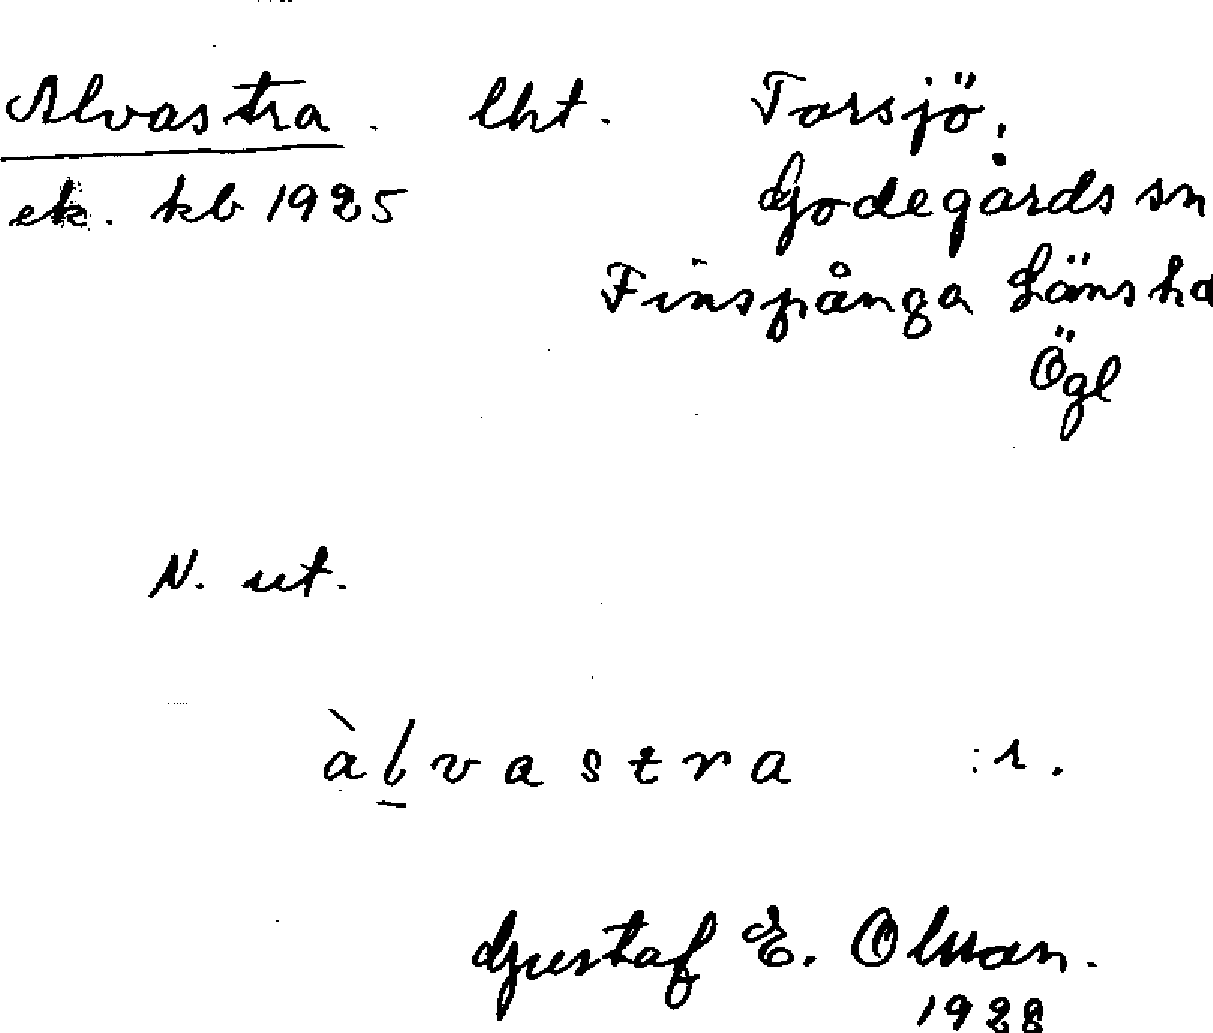 Alvastra. lht. Torsjö,
ek. kb 1925 Godegårds sn
Finspånga Länshd
Ögl
N. ut.
àlvastra :1.
Gustaf E. Olsson.
1928